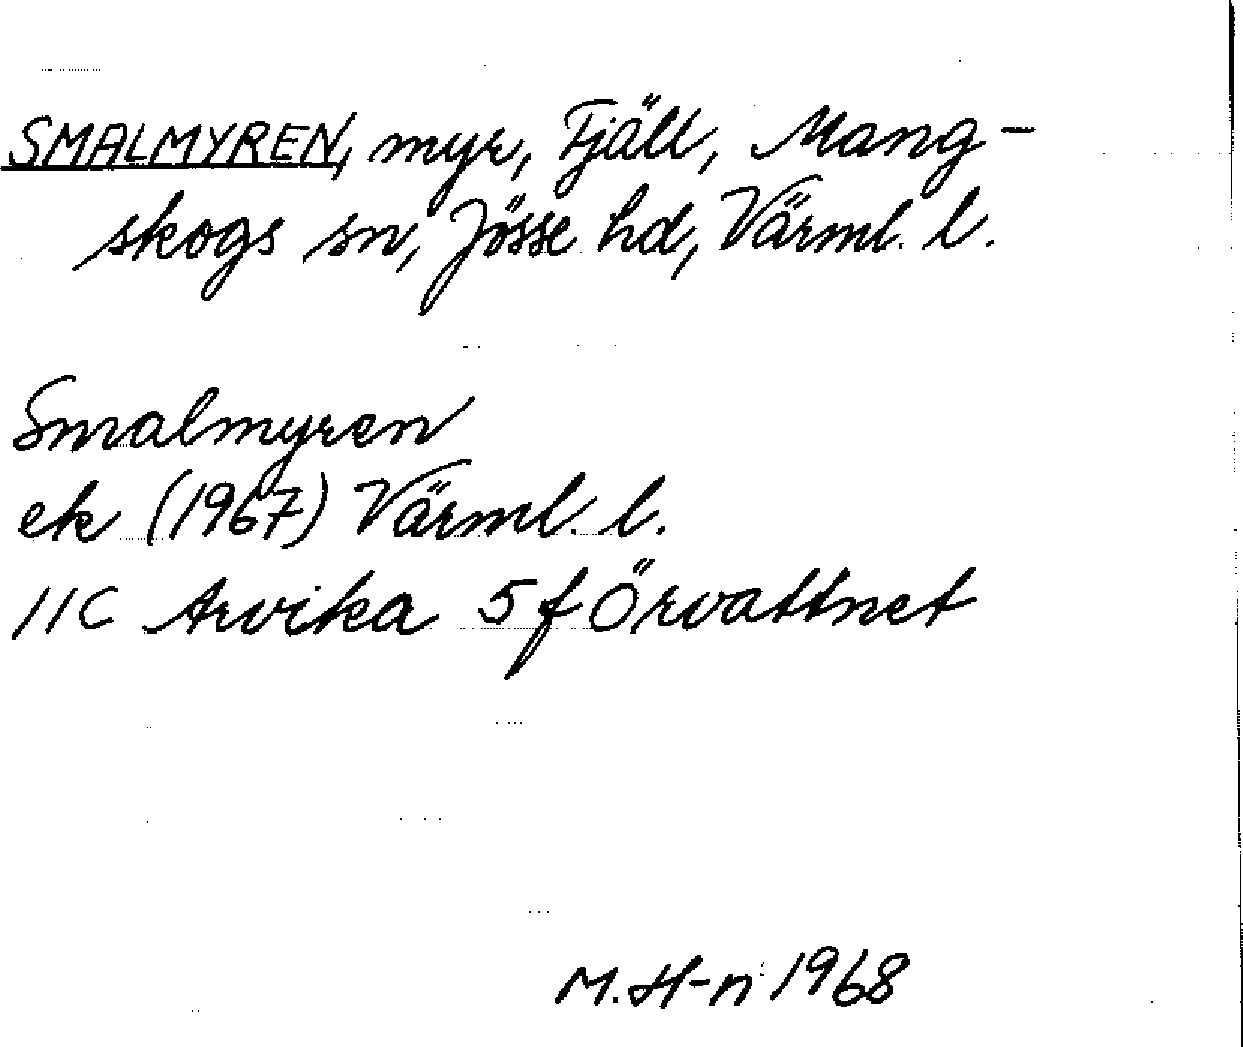 SMALMYREN, myr, Fjäll, Mang-
skogs sn, Jösse hd, Värml. l.
Smalmyren
ek (1967) Värml. l.
11C Arvika 5f Örvattnet
M. H-n 1968